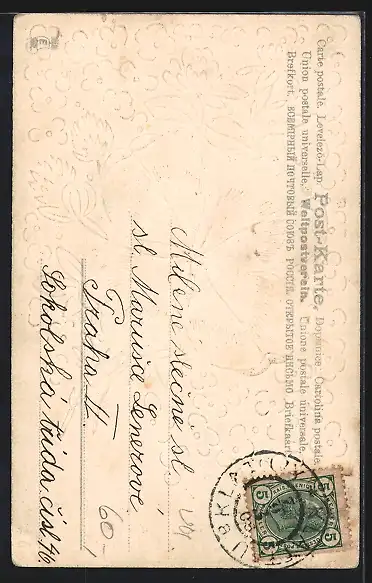 Carte postale. Levelező-Lap. Post-Karte. Dopisnice Cartolina postale
Union postale universelle. Weltpostverein. Unione postale universale.
Brefkort. ВСЕМІРНЫЙ ПОЧТОВЫЙ СОЮЗЪ РОССІЯ. ОТКРЫТОЕ ПИСЬМО Briefkaart
5 5
5 5
Milene slečne sl
sl. Marusa Lenerové
Praha II.
60,-
Sokolská třída čísl. 46.